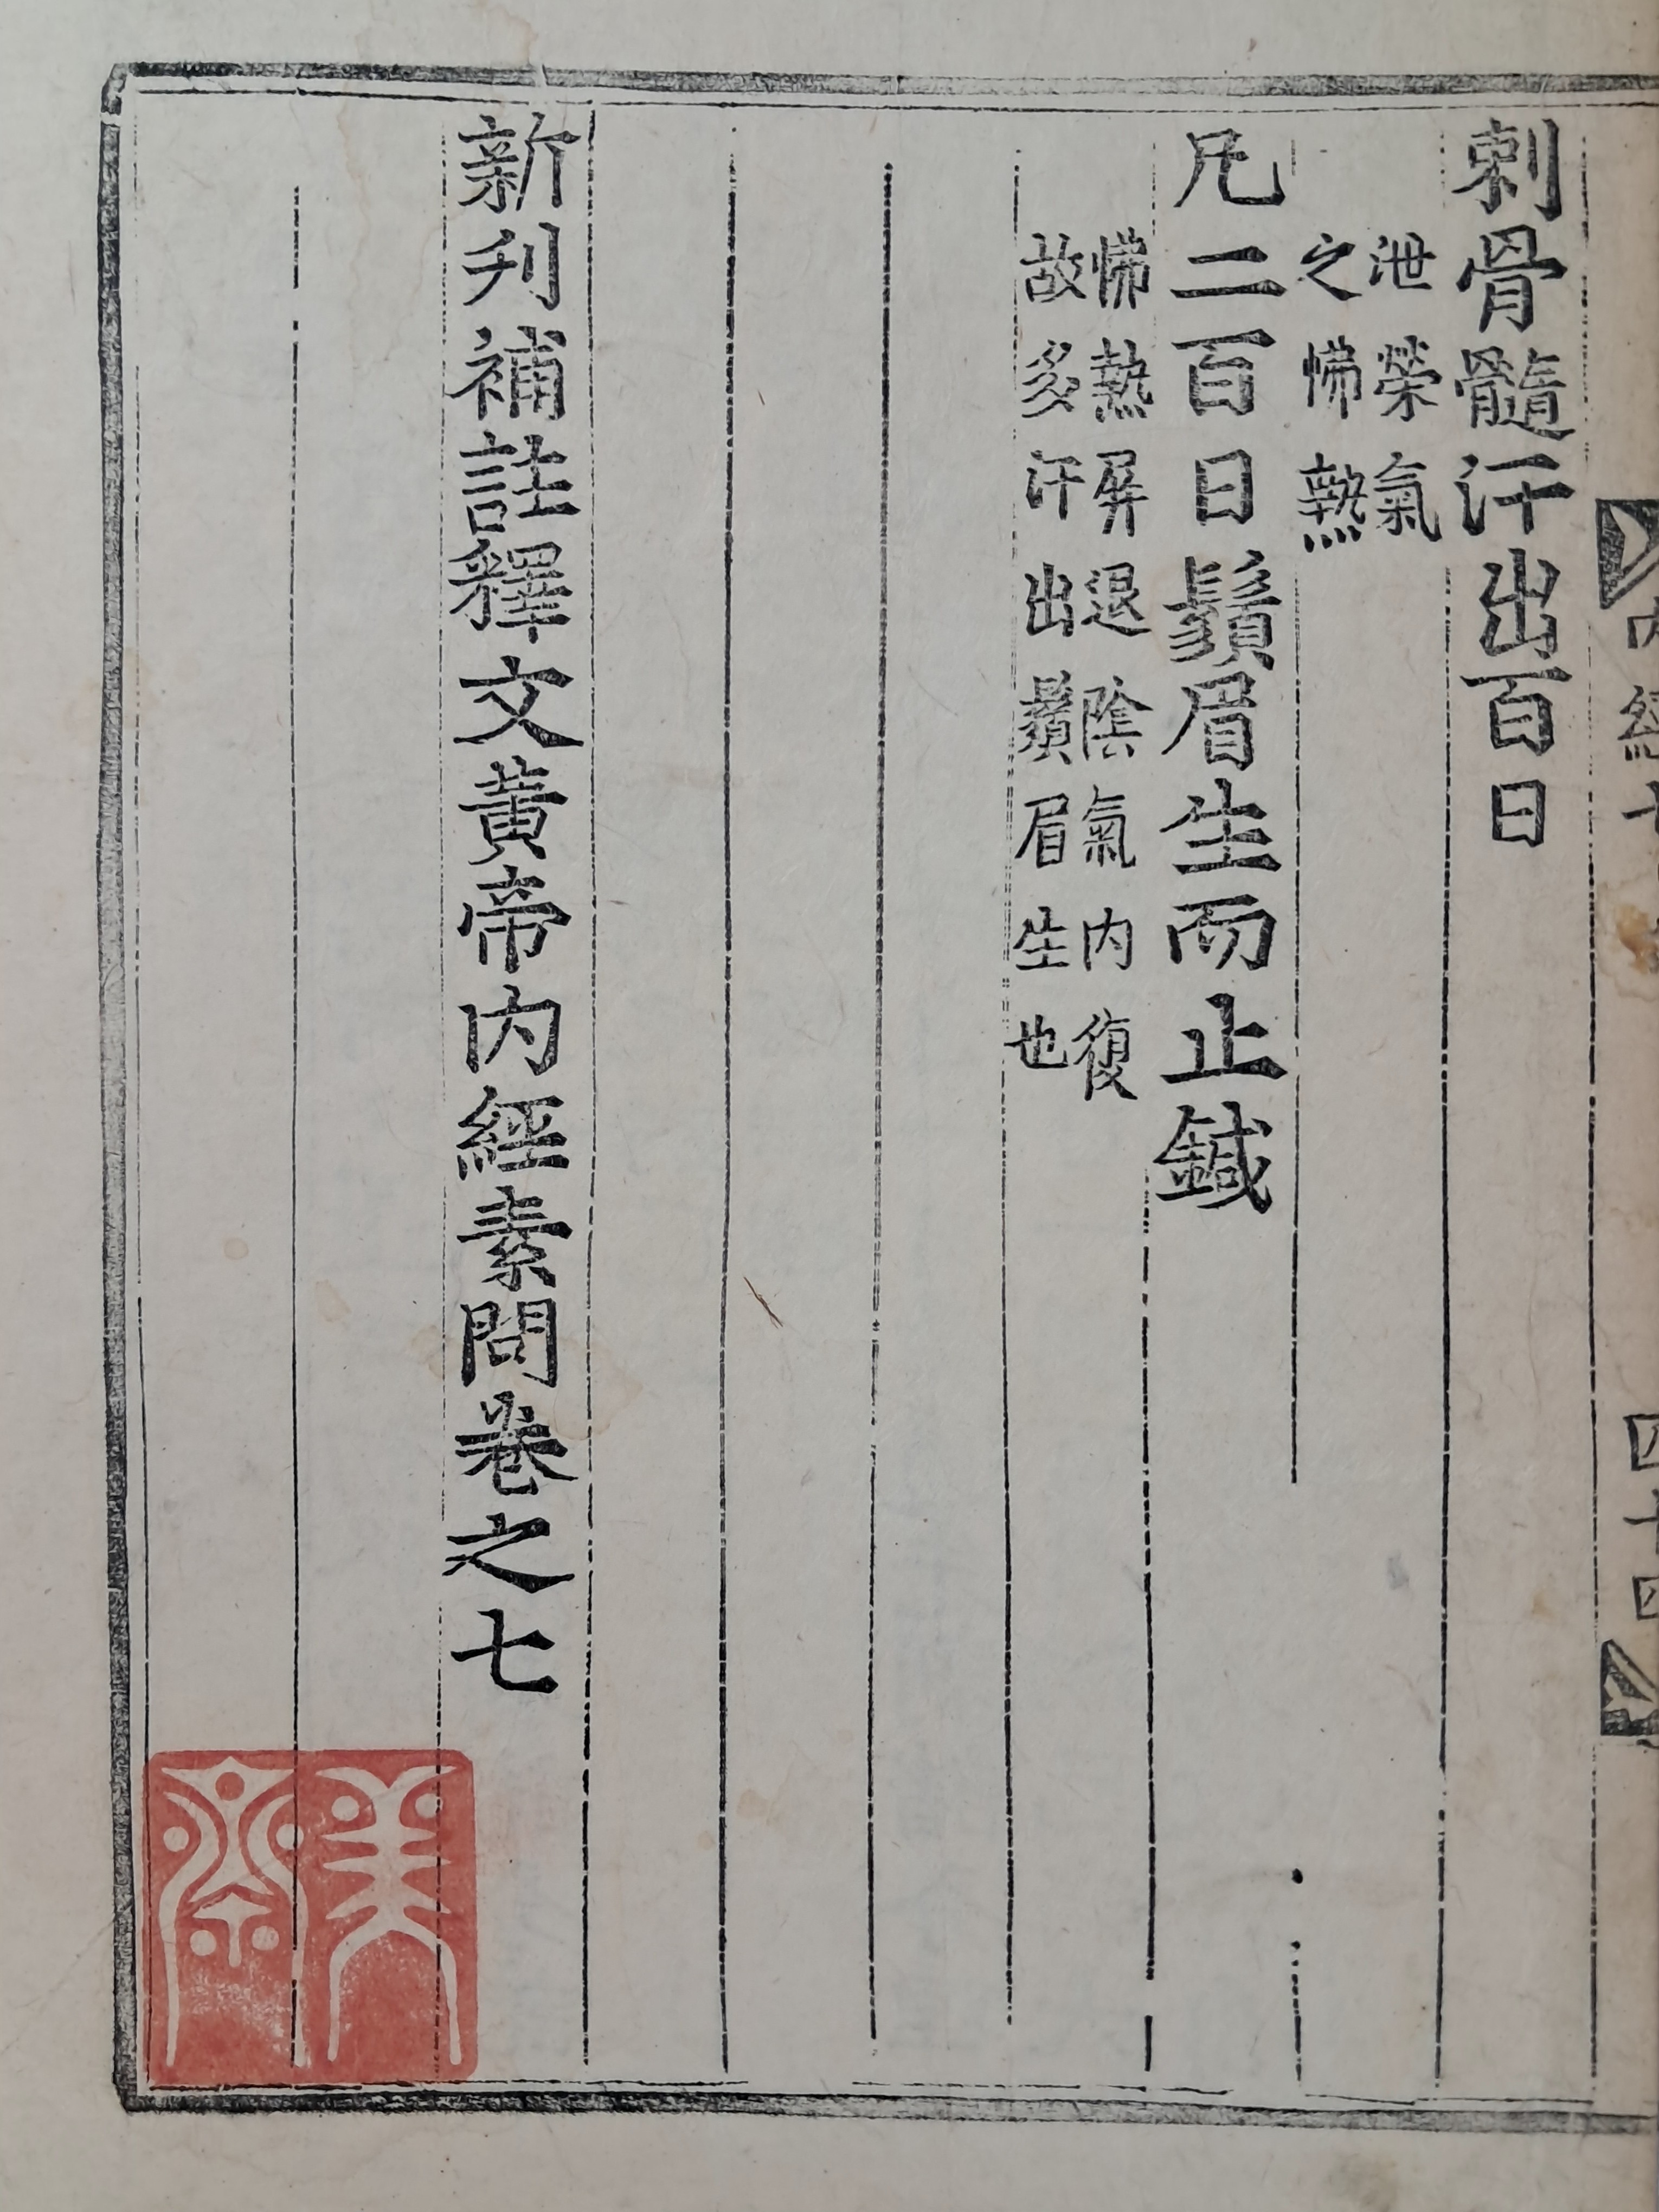 刺骨髓汗出百日
泄榮氣
之怫熱
凡二百日鬚眉生而止鍼
怫熱屏退陰氣内復
故多汗出鬚眉生也
新刋補註釋文黃帝内經素問卷之七